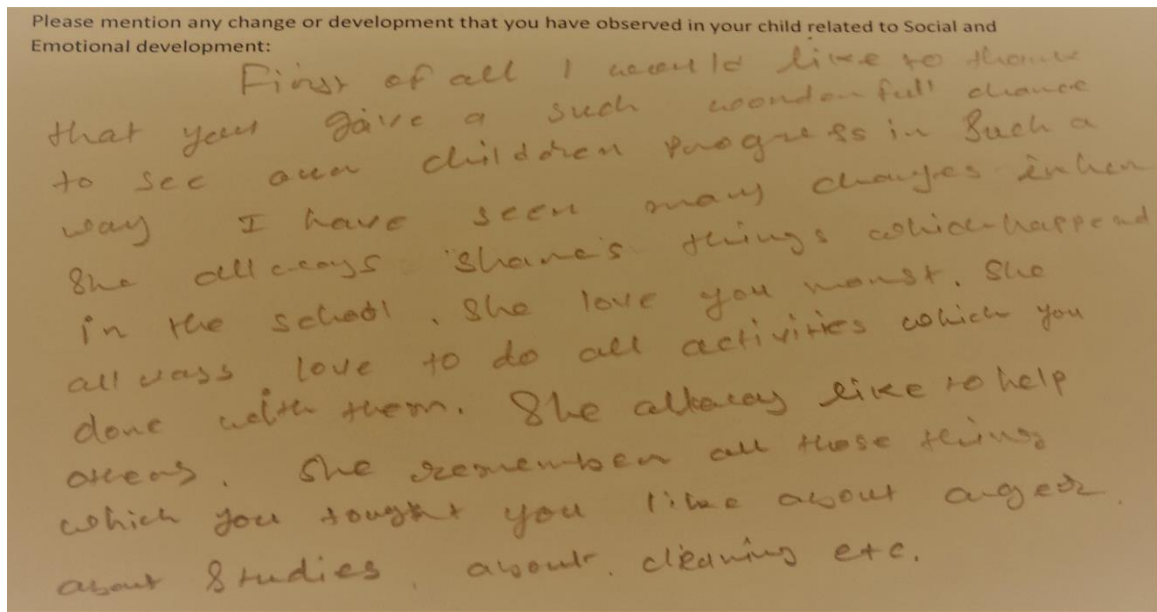 Please mention any change or development that you have observed in your child related to Social and
Emotional development:
First of all I would like to thank
that you gave a such woondenfull chance
to see our children progress in such a
way I have seen many changes in her
She allways Share's things which happend
in the school. She love you monst. She
all ways love to do all activities which you
done with them. She allways like to help
others. She remember all those thing
which you tought you like about anger.
about Studies, about cleaning etc.